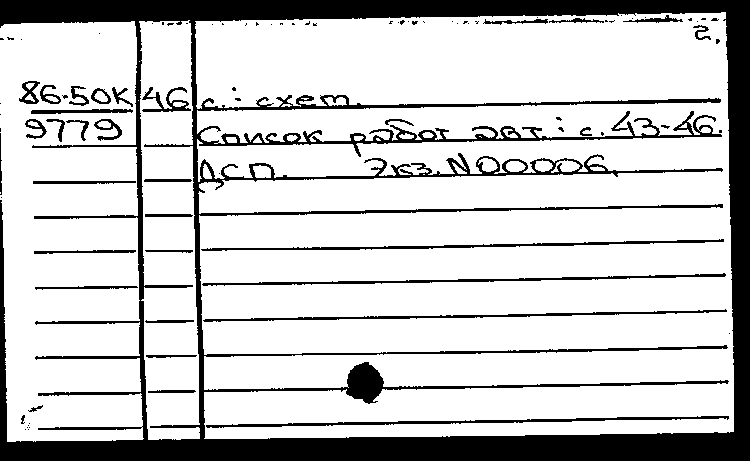 2.
86-50К 46 с.: схем.
9779 Список работ авт.: с. 43-46.
ДСП. Экз. N00006.